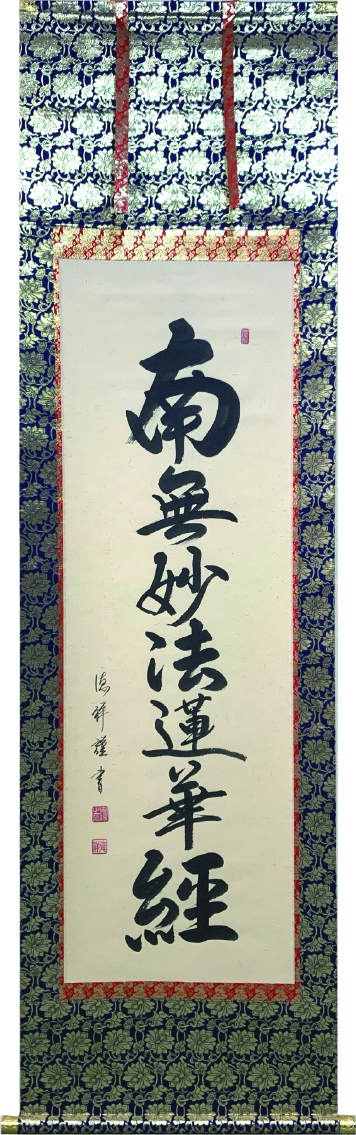 南無妙法蓮華經
德祥謹書